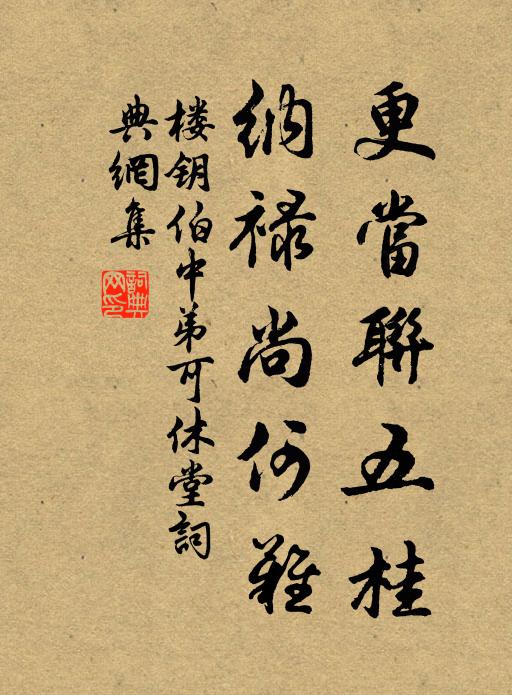 更當聯五桂
納祿尚何難
楼钥伯中弟可休堂詞
典網集
詞典网印